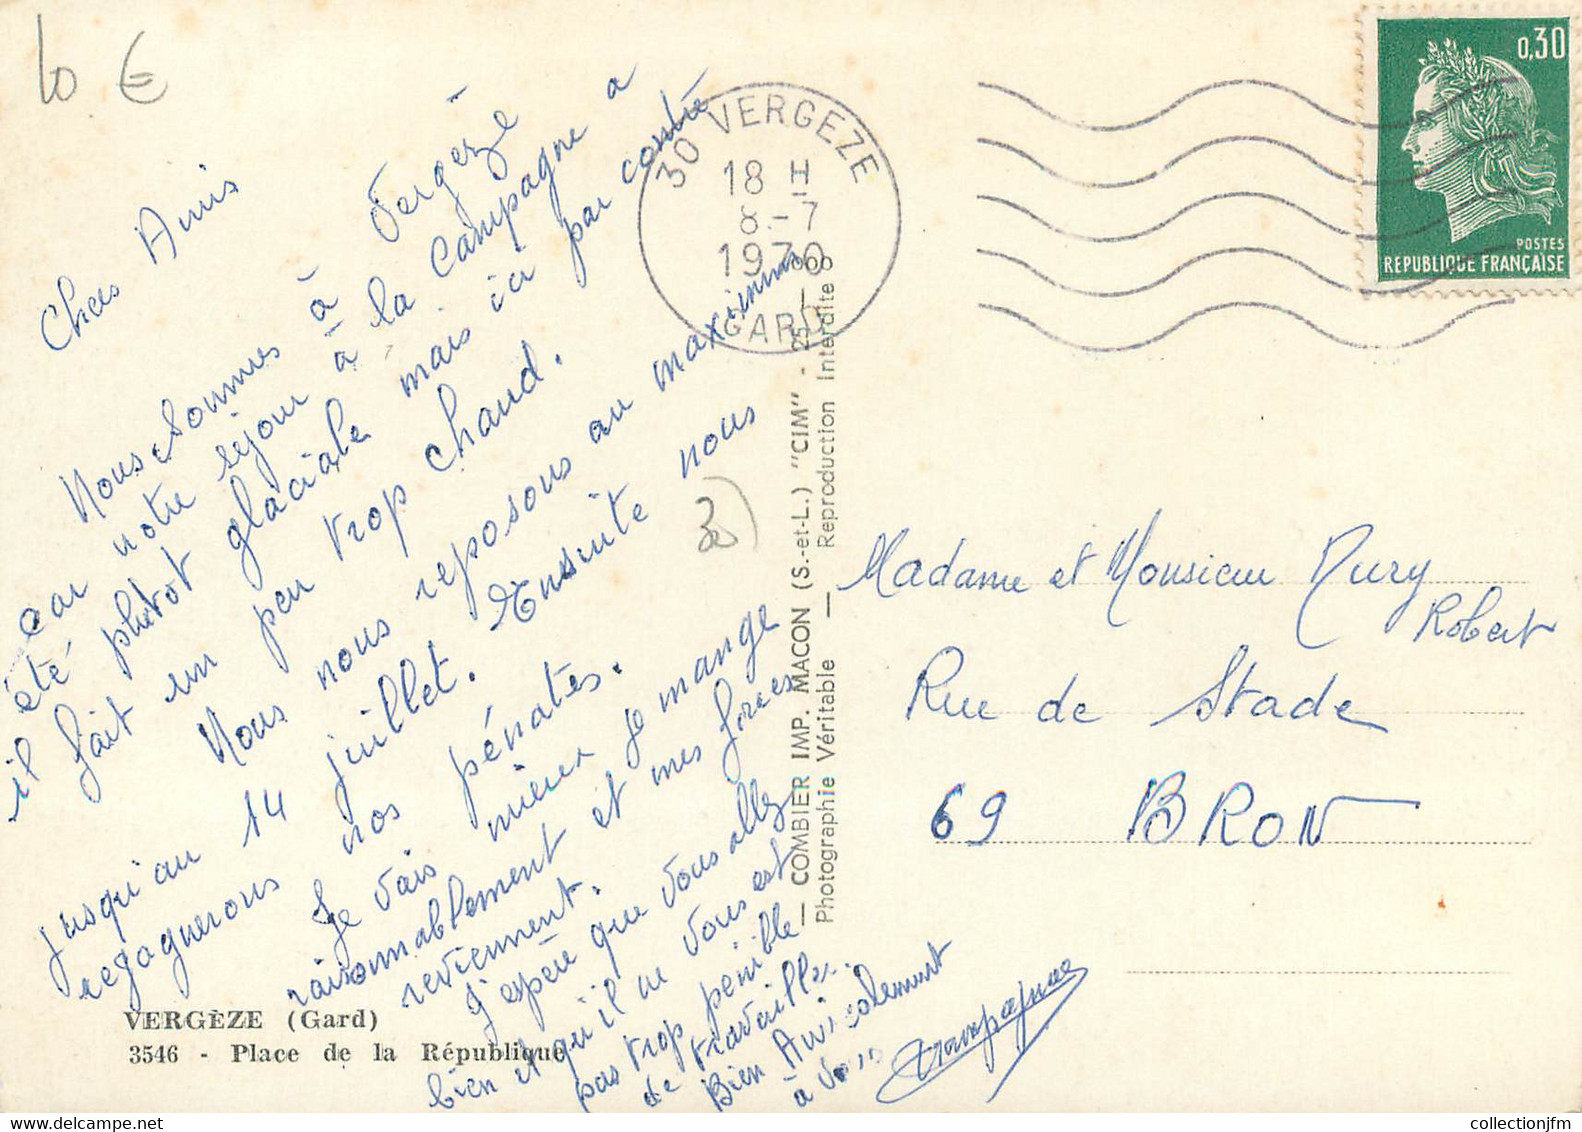 10 €
Chers Amis
Nous sommes à Vergèze
car notre séjour à la campagne a
été plutôt glaciale mais ici par contre
il fait un peu trop chaud.
Nous nous reposons au maximum
jusqu'au 14 juillet. Ensuite nous
regagnerons nos pénates.
Je vais mieux je mange
raisonnablement et mes forces
reviennent.
J'espère que vous allez
bien et qu'il ne vous est
pas trop pénible
de travailler.
Bien Amicalement
à vous
30 VERGEZE
18 H
8-7
1970
GARD
0,30
POSTES
REPUBLIQUE FRANÇAISE
COMBIER IMP. MACON (S.-et-L.) "CIM" - 25 - 000
Photographie Véritable — Reproduction Interdite
Madame et Monsieur Mury
Robert
Rue de Stade
69 BRON
VERGÈZE (Gard)
3546 - Place de la République
collectionjfm